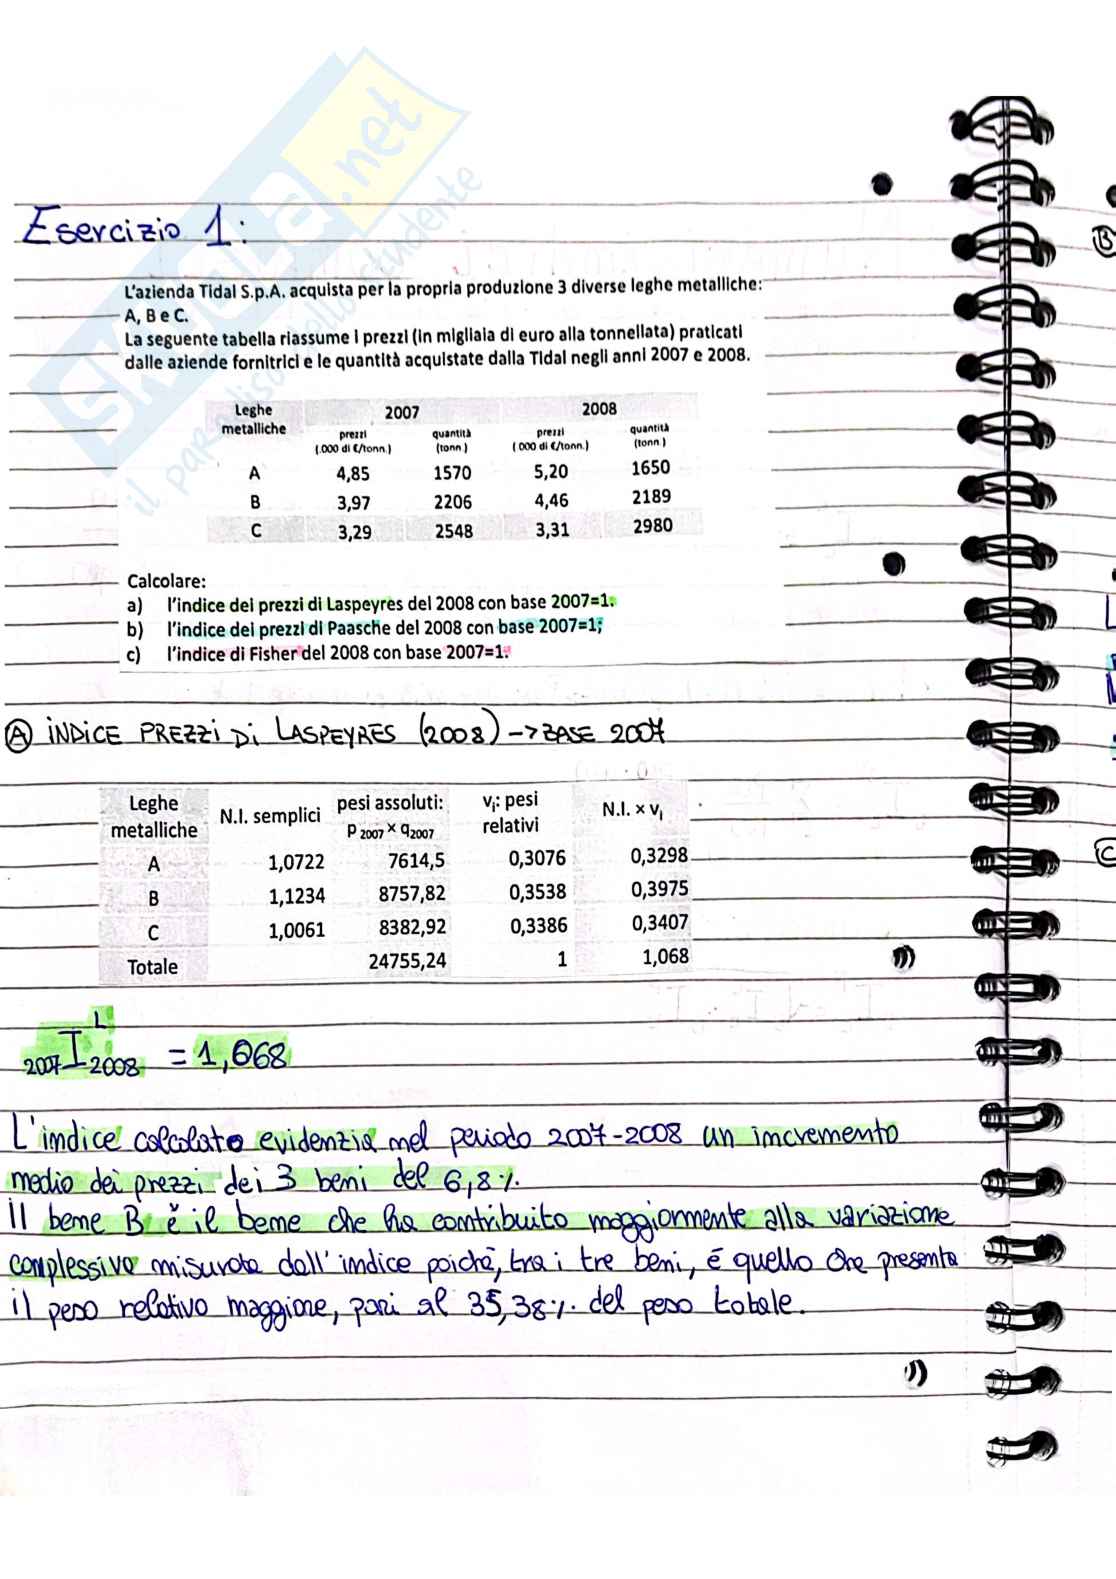 SKUOLA.net
il paradiso dello studente
Esercizio 1:
L'azienda Tidal S.p.A. acquista per la propria produzione 3 diverse leghe metalliche:
A, B e C.
La seguente tabella riassume i prezzi (in migliaia di euro alla tonnellata) praticati
dalle aziende fornitrici e le quantità acquistate dalla Tidal negli anni 2007 e 2008.
Leghe metalliche 2007 2008
prezzi (.000 di €/tonn.) quantità (tonn ) prezzi ( 000 di €/tonn.) quantità (tonn )
A 4,85 1570 5,20 1650
B 3,97 2206 4,46 2189
C 3,29 2548 3,31 2980
Calcolare:
a) l'indice dei prezzi di Laspeyres del 2008 con base 2007=1.
b) l'indice dei prezzi di Paasche del 2008 con base 2007=1;
c) l'indice di Fisher del 2008 con base 2007=1.
A INDICE PREZZI DI LASPEYRES (2008) -> BASE 2007
Leghe metalliche N.I. semplici pesi assoluti: p 2007 × q2007 vi: pesi relativi N.I. × vi
A 1,0722 7614,5 0,3076 0,3298
B 1,1234 8757,82 0,3538 0,3975
C 1,0061 8382,92 0,3386 0,3407
Totale 24755,24 1 1,068
2007 I L 2008 = 1,068
L'indice calcolato evidenzia nel periodo 2007-2008 un incremento
medio dei prezzi dei 3 beni del 6,8%.
il bene B è il bene che ha contribuito maggiormente alla variazione
complessiva misurata dall'indice poichè, tra i tre beni, è quello che presenta
il peso relativo maggiore, pari al 35,38%. del peso totale.
B
C